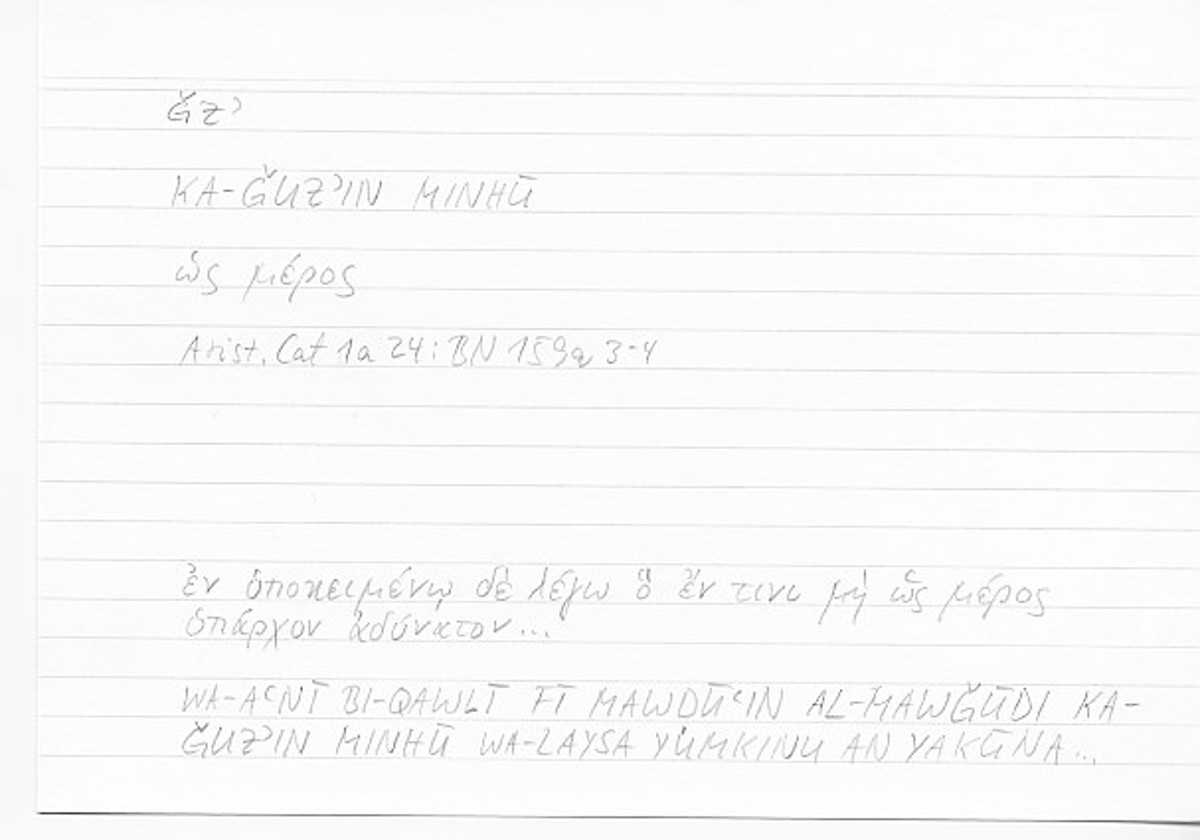 ǦZʾ
KA-ǦUZʾIN MINHŪ
ὡς μέρος
Arist. Cat 1a 24: BN 159a 3-4
ἐν ὑποκειμένῳ δὲ λέγω ὃ ἔν τινι μὴ ὡς μέρος
ὑπάρχον ἀδύνατον...
WA-AʿNĪ BI-QAWLĪ FĪ MAWDŪʿIN AL-MAWǦŪDI KA-
ǦUZʾIN MINHŪ WA-LAYSA YUMKINU AN YAKŪNA...